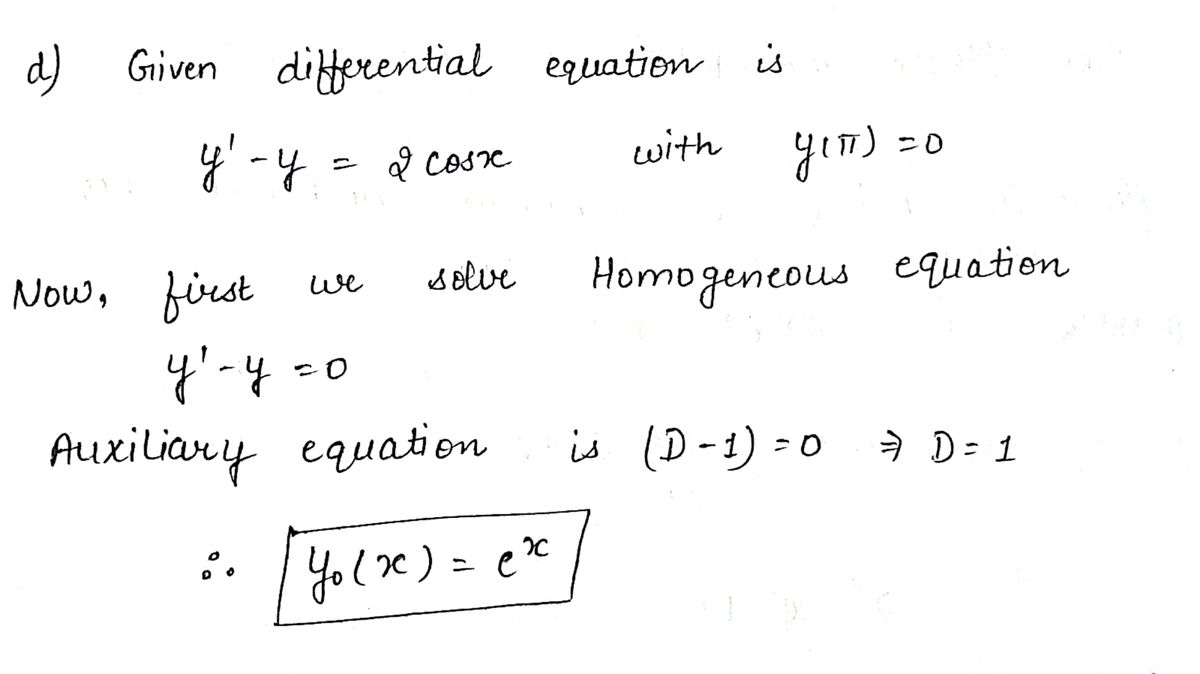 d) Given differential equation is
y' - y = 2 cosx with y(π) = 0
Now, first we solve Homogeneous equation
y' - y = 0
Auxiliary equation is (D - 1) = 0 ⇒ D = 1
∴ y₀(x) = eˣ